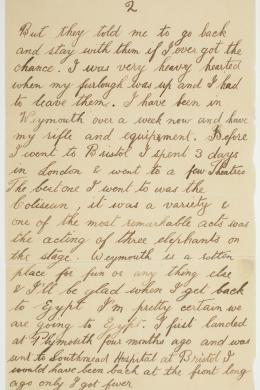 2
But they told me to go back
and stay with them if I ever got the
chance. I was very heavy hearted
when my furlough was up and I had
to leave them. I have been in
Weymouth over a week now and have
my rifle and equipment. Before
I went to Bristol I spent 3 days
in London & went to a few Theatres
The best one I went to was the
Coliseum, it was a variety &
one of the most remarkable acts was
the acting of three elephants on
the stage. Weymouth is a rotten
place for fun or any thing else
& I'll be glad when I get back
to Egypt I'm pretty certain we
are going to Egypt. I first landed
at Plymouth four months ago and was
sent to Southmead Hospital at Bristol I
would have been back at the front long
ago only I got fever